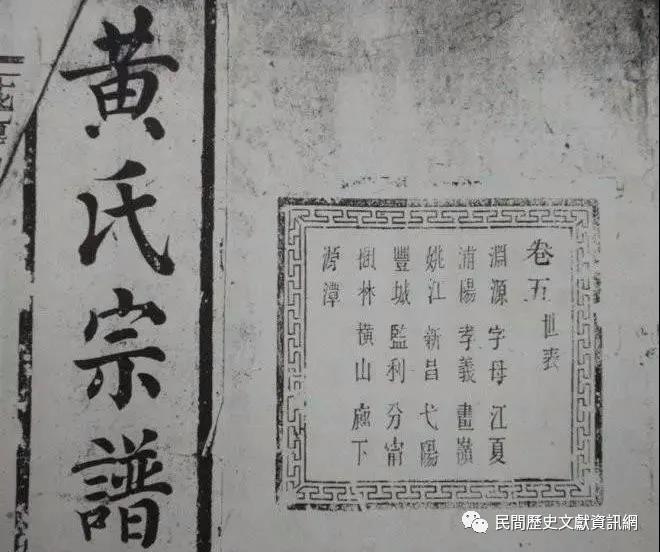 黃氏宗譜
卷五 世表
淵源 字母 江夏
浦陽 孝義 畫嶺
姚江 新昌 弋陽
豐城 監利 分甯
林 橫山 下
源潭
民間歷史文獻資訊網